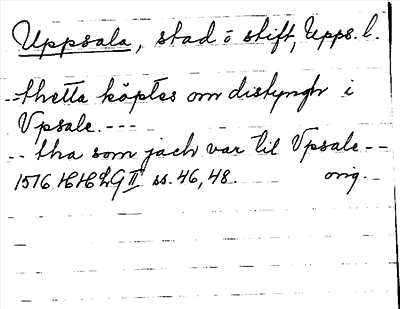 Uppsala, stad o stift, Upps. l.
--thetta köptes om distyngh i
Vpsale.---
-- tha som jach var til Vpsale--
1516. HHLG II ss. 46, 48. orig.